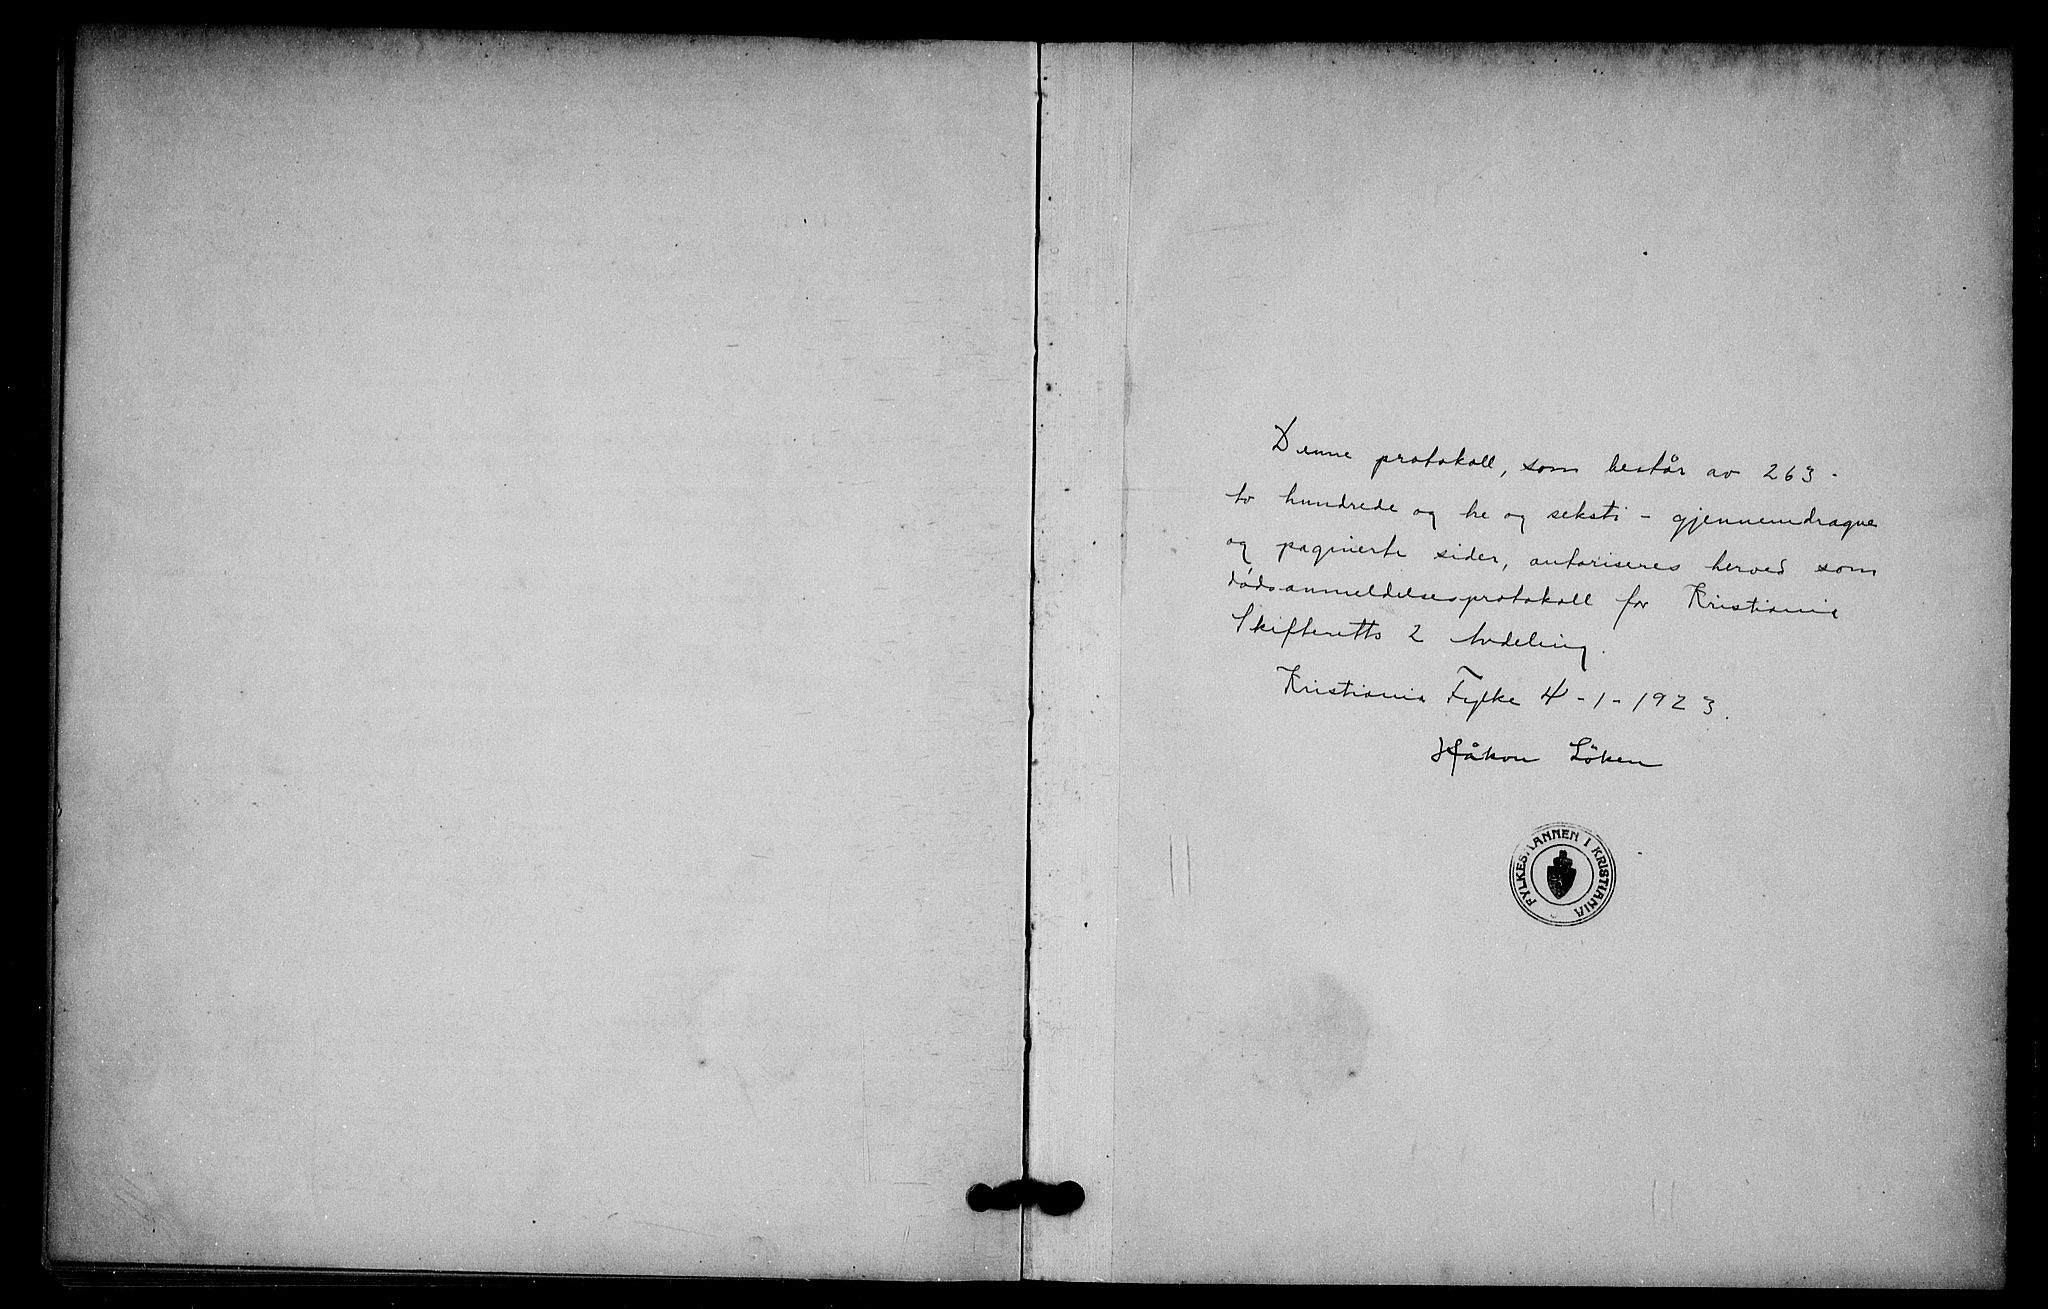 Denne protokoll, som består av 263 -
to hundrede og tre og seksti - gjennemdragne
og paginerte sider, autoriseres herved som
dødsanmeldelsesprotokoll for Kristiania
Skifteretts 2 Avdeling.
Kristiania Fylke 4-1-1923.
Håkon Löken
FYLKESMANNEN I KRISTIANIA